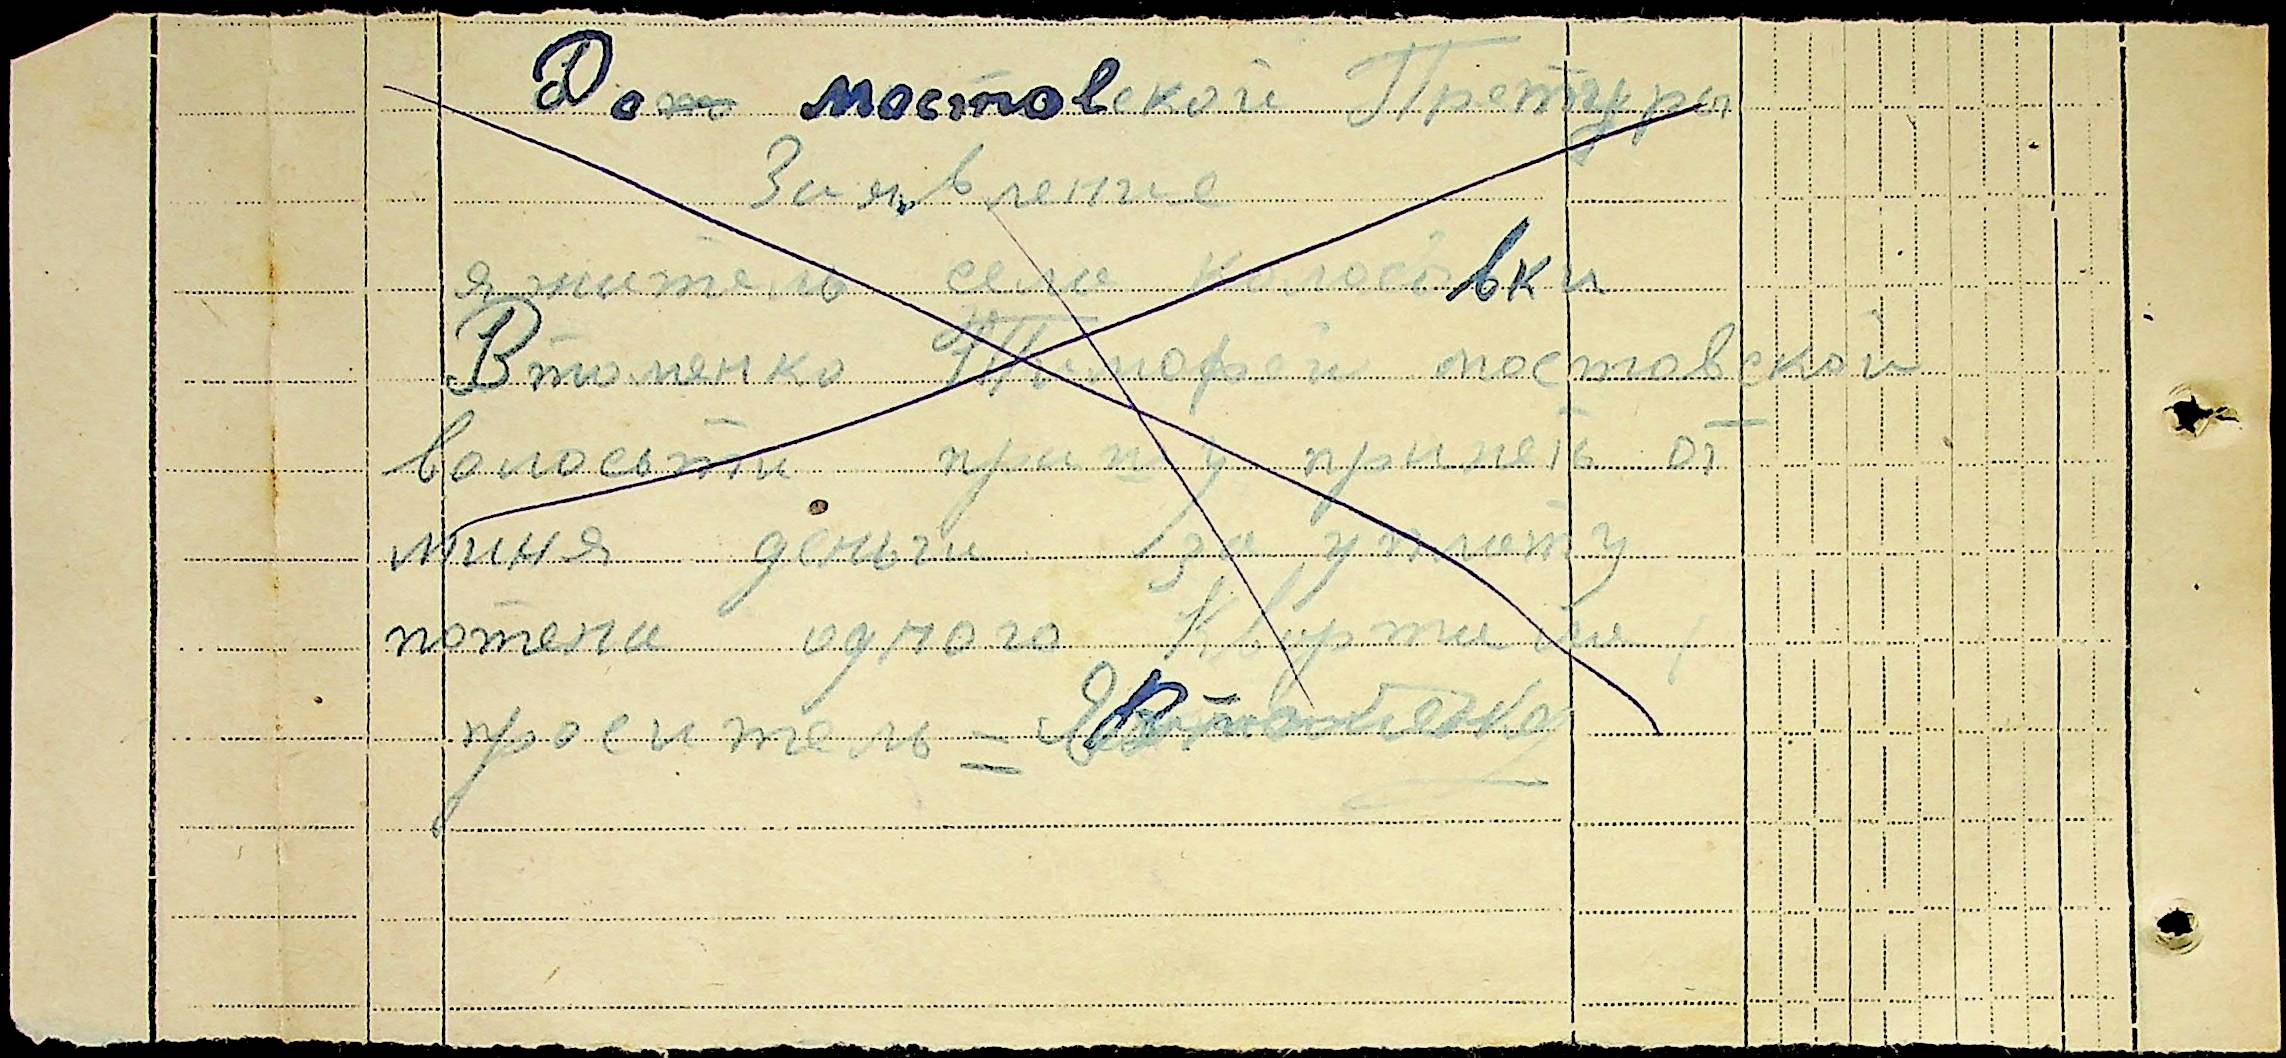 До мостовской Претуры
Заявление
я житель села Колосовки
Втоменко Тимофей мостовской
волосьти прошу принеть от
миня деньги за уплату
потента одного Квартала,
проситель = Втоменко